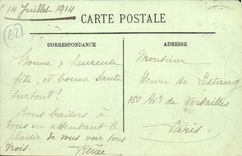 14 Juillet 1914
CARTE POSTALE
CORRESPONDANCE
ADRESSE
Bonne & heureuse
fête, et bonne santé
surtout!
Nous baisers à
tous en attendant le
plaisir de vous voir tous
trois.
Renée
Monsieur
Henri de Lestang
160 Av. de Versailles
Paris.